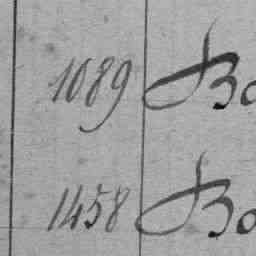 1089 Bo
1458 Bo